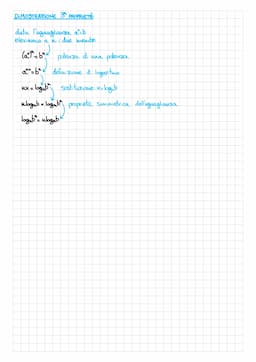 DIMOSTRAZIONE 3ª PROPRIETÀ
data l'uguaglianza aˣ=b
eleviamo a k i due membri
(aˣ)ᵏ=bᵏ potenza di una potenza
aᵏˣ=bᵏ definizione di logaritmo
kx=logₐbᵏ sostituzione x=logₐb
k logₐb=logₐbᵏ proprietà simmetrica dell'uguaglianza
logₐbᵏ=k logₐb